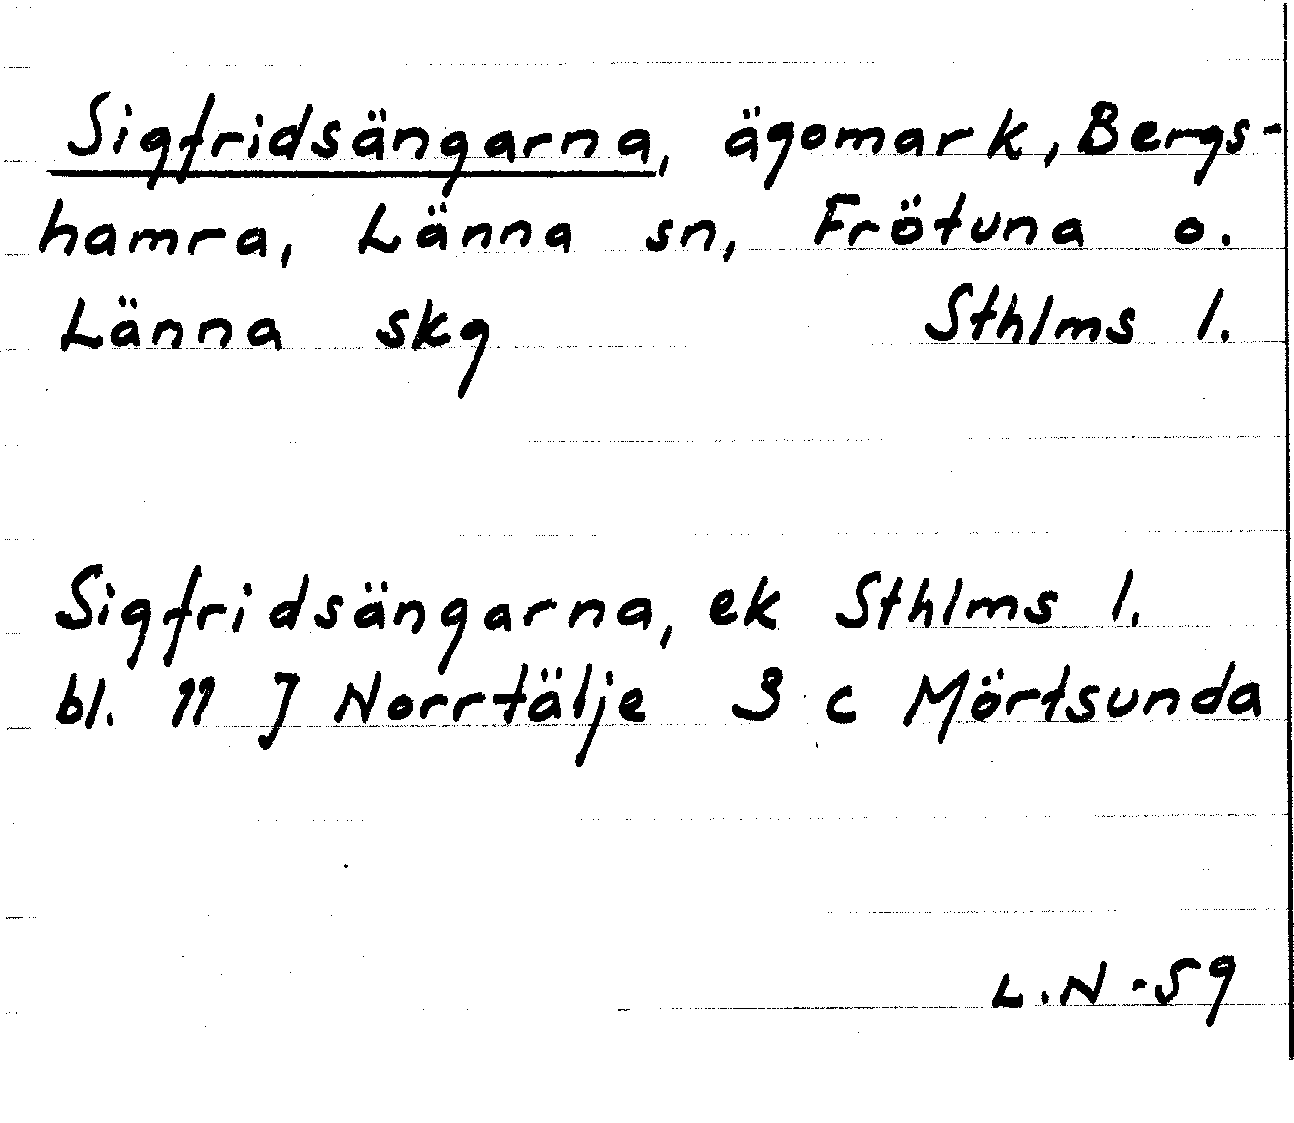 Sigfridsängarna, ägomark, Bergs-
hamra, Länna sn, Frötuna o.
Länna skg Sthlms l.
Sigfridsängarna, ek Sthlms l.
bl. 11 J Norrtälje 3 c Mörtsunda
L.N -59